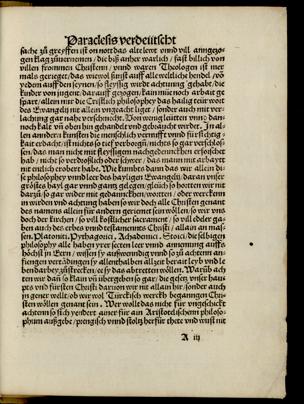 Paraclesis verdeütscht
sache zů greyffen ist on nott das alte lewt vnnd vill anngezo
gen klag zůuernemen / die biß anher warlich / fast billich von
villen frommen Christenn / vnnd waren Theologen ist mer
mals gerieget / das wiewol sunst auff alle weltliche hendel / vō
yedem auff den seynen / so fleyssig wirdt achtung gehabt / die
kinder von jugent darauff gezogen / kain müe noch arbait ge
spart / allein mir die Cristlich philosophey das hailig teür wort
des Ewangelij nit allein vngeacht ligt / sonder auch mit ver-
lachung gar nahe verschmecht. Von wenig leütten vnnd dan-
noch kalt vn oben hin gehandelt vnd gebraucht würdet. In al
len anndern künsten die menschlich vernunfft vnd fürsichtig-
kait erdacht / ist nichts so tieff verborgē / nichts so gar verschlos-
sen / das man nicht mit fleyssigem nachgedencken ersoechet
hab / nicht so verdroßlich oder schwer / das mann mit arbaytt
nit endtlich erobert habe. Wie kumbts dann das wir allein di-
se philosophey vnnd leer des hayligen Ewangelij. daran vnser
gröstes hayl gar vnnd gantz gelegen / gleich so hetten wir mit
darzů so gar wider mit gedanncken / worten / oder wercken
vnnd achtung haben wöllen so wir doch alle Christen genant
des namens allein für andern geriemet sein wöllen / so wir vns
doch der kirchen / so vill kostlicher Sacrament / so vill edler ga-
ben auch des erbes vnnd testamennts Christi / allain an mas-
sen. Platonici. Pithagorei / Achademici. Stoici / die selbigen
philosophy alle haben yrer secten leer vnnd annemung auffs
höchst zu lern / wissen sy außwendig vnnd so zů achtenn an-
fiengen vertädingen sy allenthalben allzeit berait leyb vnd le
ben darbey zůstrecken / ee sy das abtretten wöllen. Warūb ach
ten wir dañ so klain vn̄ übergeben so gar / die gesetz vnser haus
pts vnd fürsten Christi dar uon wir nit allain hir / sonder auch
in gener welt / ob wir wol Türckisch werckh begangen Chri-
sten wöllen genant sein. Wer wollt das nicht für vngeschickt
achten so sich yendert ainer für ain Aristotelischenn philoso-
phum außgebe / prengisch vnnd stoltz herfür thete vnd wüst nit
A iij